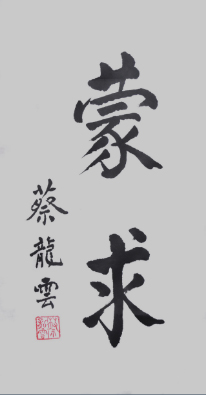 蒙求
蔡龍雲